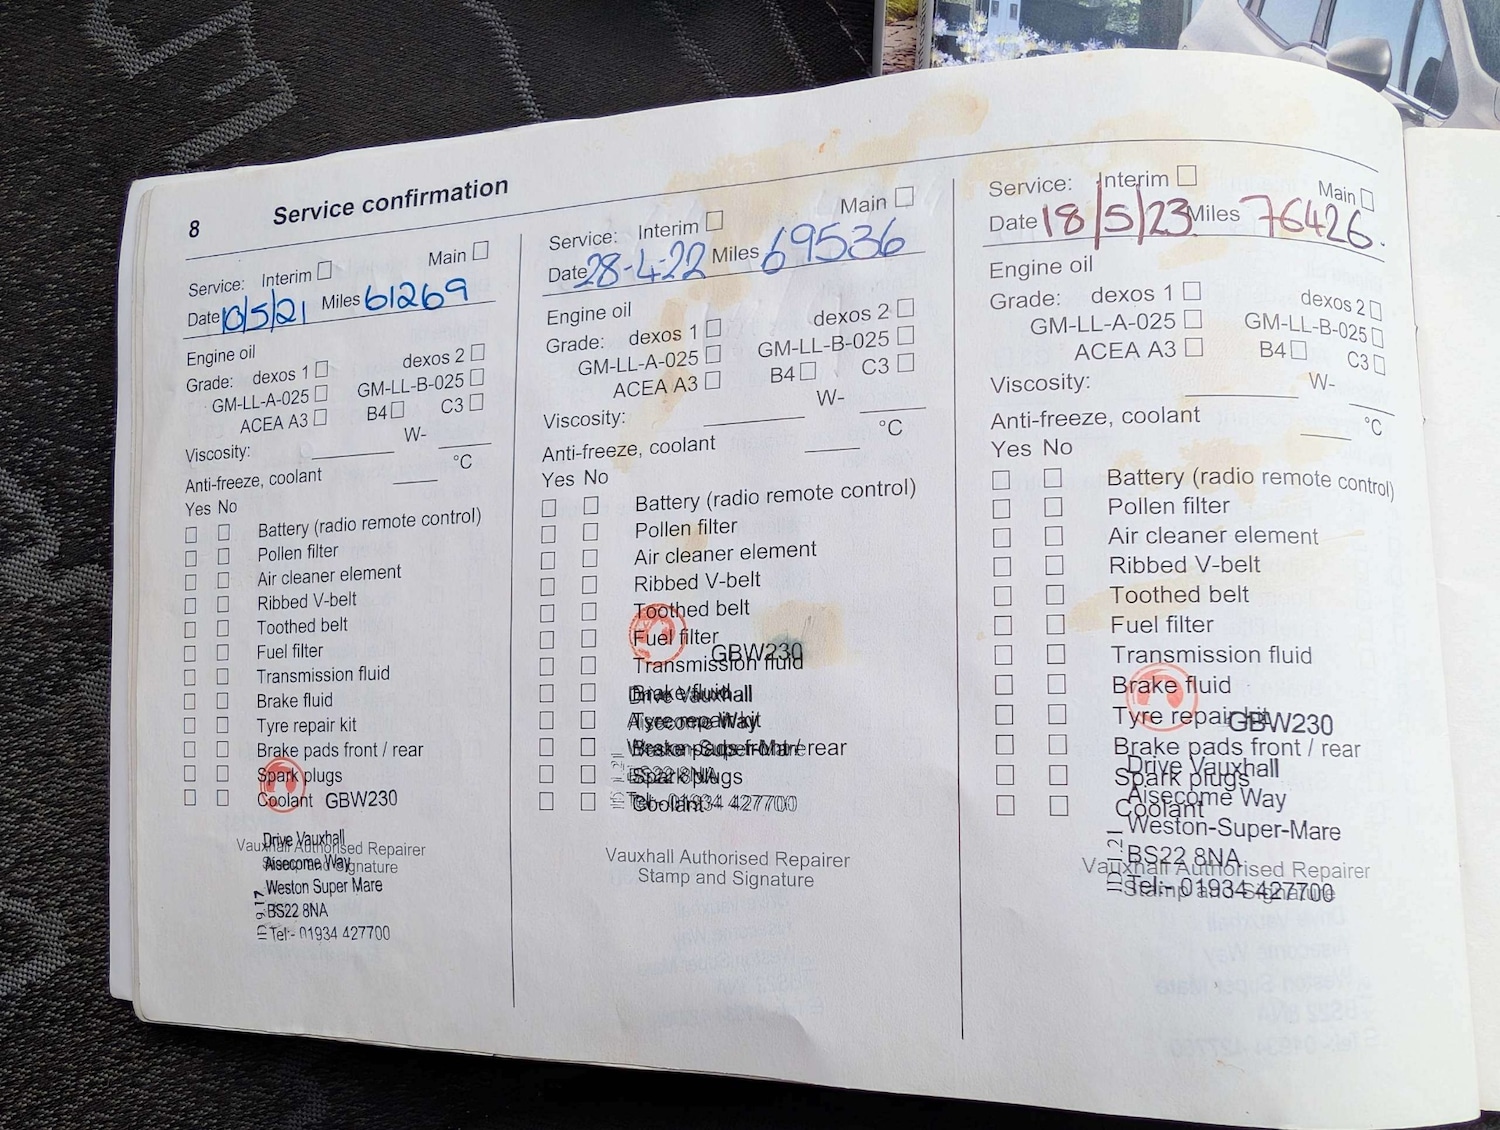 8 Service confirmation
Service: Interim ☐ Main ☐
Date 10/5/21 Miles 61269
Engine oil
Grade: dexos 1 ☐ dexos 2 ☐
GM-LL-A-025 ☐ GM-LL-B-025 ☐
ACEA A3 ☐ B4 ☐ C3 ☐
Viscosity: ______ W- ______
Anti-freeze, coolant ____ °C
Yes No
☐ ☐ Battery (radio remote control)
☐ ☐ Pollen filter
☐ ☐ Air cleaner element
☐ ☐ Ribbed V-belt
☐ ☐ Toothed belt
☐ ☐ Fuel filter
☐ ☐ Transmission fluid
☐ ☐ Brake fluid
☐ ☐ Tyre repair kit
☐ ☐ Brake pads front / rear
☐ ☐ Spark plugs
☐ ☐ Coolant GBW230
Drive Vauxhall
Vauxhall Authorised Repairer
Aisecome Way
Stamp and Signature
Weston Super Mare
BS22 8NA
Tel:- 01934 427700
Service: Interim ☐ Main ☐
Date 28-4-22 Miles 69536
Engine oil
Grade: dexos 1 ☐ dexos 2 ☐
GM-LL-A-025 ☐ GM-LL-B-025 ☐
ACEA A3 ☐ B4 ☐ C3 ☐
Viscosity: ______ W- ______
Anti-freeze, coolant ____ °C
Yes No
☐ ☐ Battery (radio remote control)
☐ ☐ Pollen filter
☐ ☐ Air cleaner element
☐ ☐ Ribbed V-belt
☐ ☐ Toothed belt
☐ ☐ Fuel filter
GBW230
☐ ☐ Transmission fluid
☐ ☐ Brake fluid
Drive Vauxhall
☐ ☐ Tyre repair kit
Aisecome Way
☐ ☐ Brake pads front / rear
Weston-Super-Mare
☐ ☐ Spark plugs
BS22 8NA
☐ ☐ Coolant
Tel:- 01934 427700
Vauxhall Authorised Repairer
Stamp and Signature
Service: Interim ☐ Main ☐
Date 18/5/23 Miles 76426.
Engine oil
Grade: dexos 1 ☐ dexos 2 ☐
GM-LL-A-025 ☐ GM-LL-B-025 ☐
ACEA A3 ☐ B4 ☐ C3 ☐
Viscosity: ______ W- ______
Anti-freeze, coolant ____ °C
Yes No
☐ ☐ Battery (radio remote control)
☐ ☐ Pollen filter
☐ ☐ Air cleaner element
☐ ☐ Ribbed V-belt
☐ ☐ Toothed belt
☐ ☐ Fuel filter
☐ ☐ Transmission fluid
☐ ☐ Brake fluid
☐ ☐ Tyre repair kit
GBW230
☐ ☐ Brake pads front / rear
Drive Vauxhall
☐ ☐ Spark plugs
Aisecome Way
☐ ☐ Coolant
Weston-Super-Mare
BS22 8NA
Vauxhall Authorised Repairer
Tel:- 01934 427700
Stamp and Signature